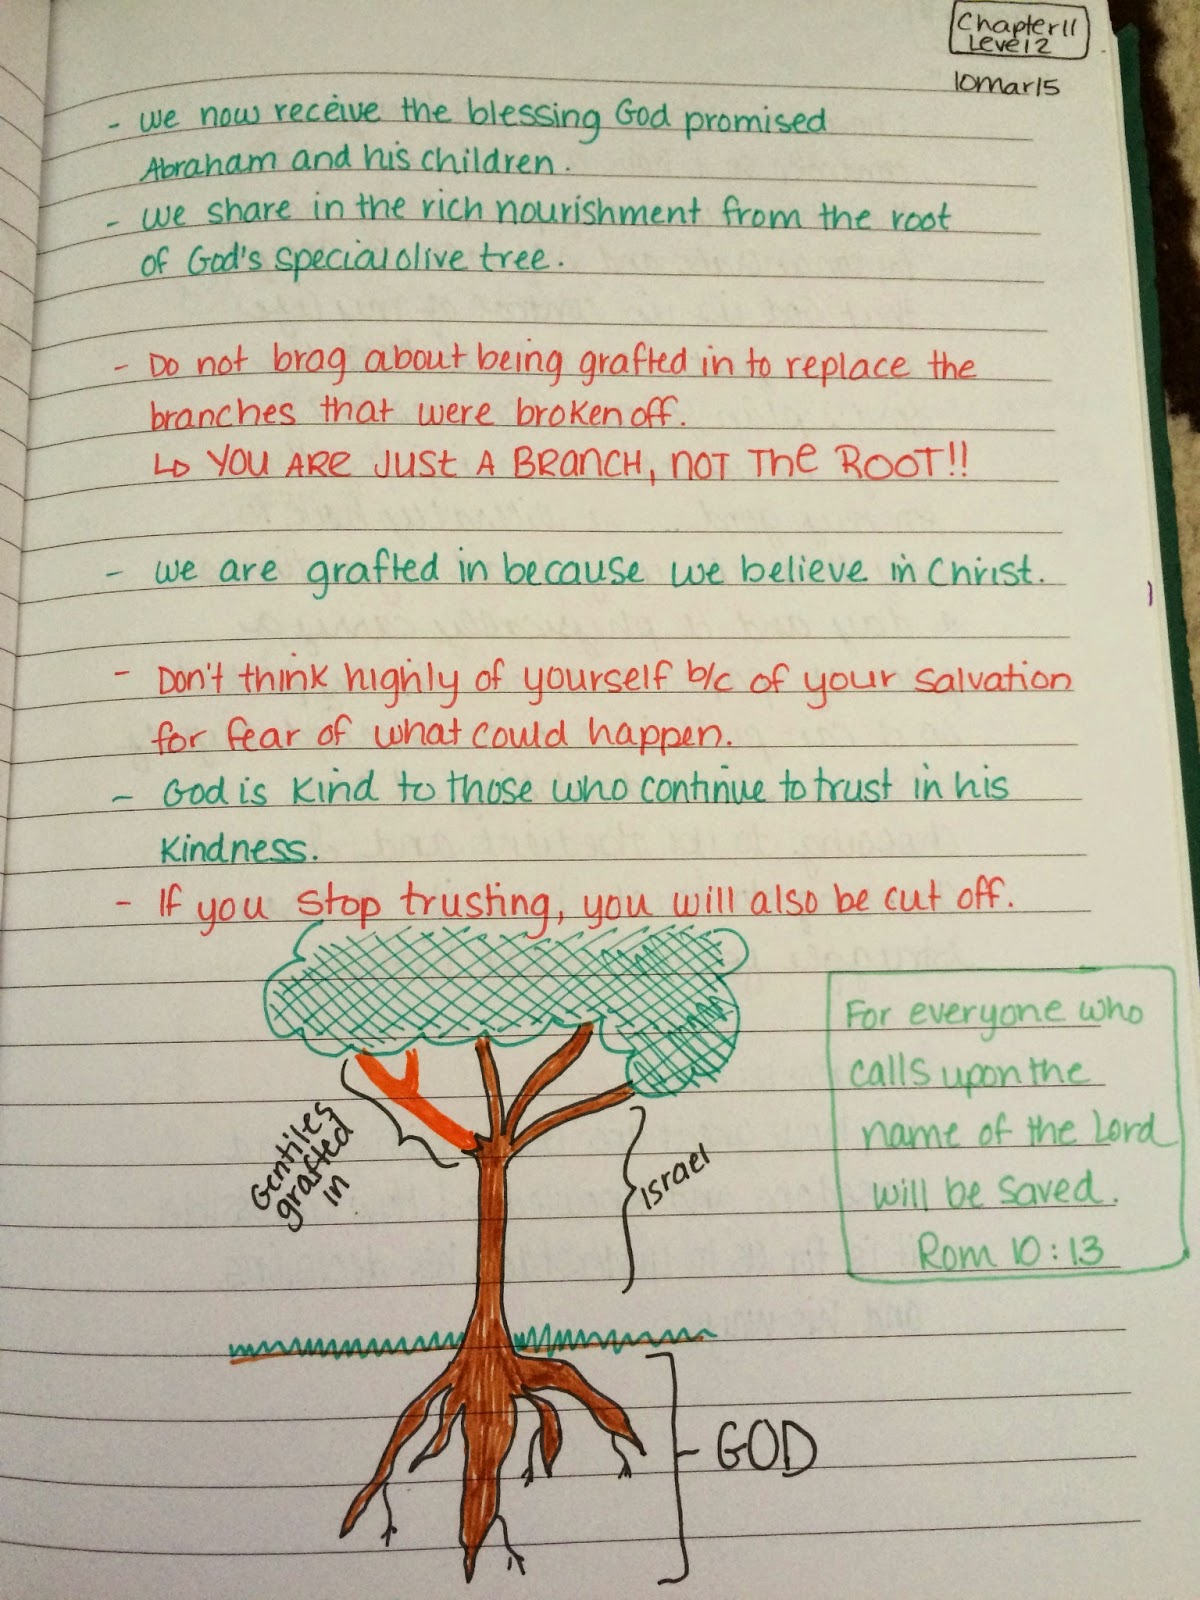 Chapter 11
Level 2
10mar15
- we now receive the blessing God promised
Abraham and his children.
- we share in the rich nourishment from the root
of God's special olive tree.
- Do not brag about being grafted in to replace the
branches that were broken off.
↳ YOU ARE JUST A BRANCH, NOT THE ROOT!!
- we are grafted in because we believe in Christ.
- Don't think highly of yourself b/c of your salvation
for fear of what could happen.
- God is kind to those who continue to trust in his
kindness.
- If you stop trusting, you will also be cut off.
For everyone who
calls upon the
name of the Lord
will be saved.
Rom 10:13
Gentiles
grafted
in
Israel
GOD